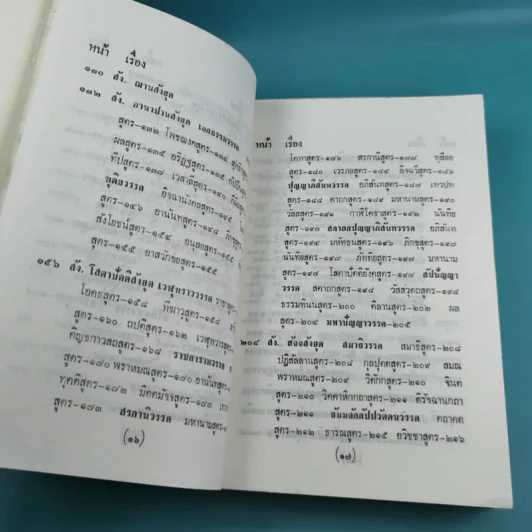 หน้า เรื่อง
๑๓๐ สัง. ฌานสังยุต
๑๓๒ สัง. อานาปานสังยุต เอกธรรมวรรค
สูตร-๑๓๒ โพชฌงคสูตร-๑๓๔
ผลสูตร-๑๓๕ อริฏฐสูตร-๑๓๖
ทีปสูตร-๑๓๗ เวสาลีสูตร-๑๓๙
ทุติยวรรค อิจฉานังคลสูตร-
สูตร-๑๔๖ อานันทสูตร-๑๔๗
สังโยชน์สูตร-๑๕๔ อนุสยสูตร-
สูตร-๑๕๕ อาสวักขยสูตร-๑๕๕
๑๕๖ สัง. โสดาปัตติสังยุต เวฬุทวารวรรค
โอคธสูตร-๑๕๘ ทีฆาวุสูตร-๑๕๘
สูตร-๑๖๐ ถปติสูตร-๑๖๒
คิญชกาวสถสูตร-๑๖๘ ราชการามวรรค
สูตร-๑๗๐ พราหมณสูตร-๑๗๐ อานันทสูตร-
ทุคติสูตร-๑๗๒ มิตตมัจจสูตร-๑๗๒
สูตร-๑๗๓ สรกานิวรรค มหานามสูตร-
(๑๖)
หน้า เรื่อง
โคธาสูตร-๑๗๖ สรกานิสูตร-๑๗๘ ทุสีลย
สูตร-๑๘๐ เวรภยสูตร-๑๘๔ ลิจฉวีสูตร-๑๘๖
ปุญญาภิสันทวรรค อภิสันทสูตร-๑๘๗ เทวปท
สูตร-๑๘๘ ภาคตสูตร-๑๘๙ มหานามสูตร-๑๙๐
วัสสสูตร-๑๙๑ กาฬิโคธาสูตร-๑๙๒ นันทิย
สูตร-๑๙๓ สคาถกปุญญาภิสันทวรรค อภิสันท
สูตร-๑๙๔ มหัทธนสูตร-๑๙๖ ภิกขุสูตร-๑๙๗
นันทิยสูตร-๑๙๗ ภัททิยสูตร-๑๙๗ มหานาม
สูตร-๑๙๗ โสดาปัตติยังคสูตร-๑๙๘ สัปปัญญ
วรรค สคาถกสูตร-๑๙๘ วัสสวุตถสูตร-๑๙๘
ธรรมทินนสูตร-๒๐๐ คิลานสูตร-๒๐๒ ผล
สูตร-๒๐๔ มหาปัญญาวรรค-๒๐๕
๒๐๘ สัง. สัจจสังยุต สมาธิวรรค สมาธิสูตร-๒๐๘
ปฏิสัลลานสูตร-๒๐๘ กุลปุตตสูตร-๒๐๘ สมณ
พราหมณสูตร-๒๐๙ วิตักกสูตร-๒๑๐ จินต
สูตร-๒๑๐ วิคคาหิกกถาสูตร-๒๑๑ ติรัจฉานกถา
สูตร-๒๑๑ ธัมมจักกัปปวัตตนวรรค ตถาคต
สูตร-๒๑๑ ธารณสูตร-๒๑๕ อวิชชาสูตร-๒๑๖
(๑๗)